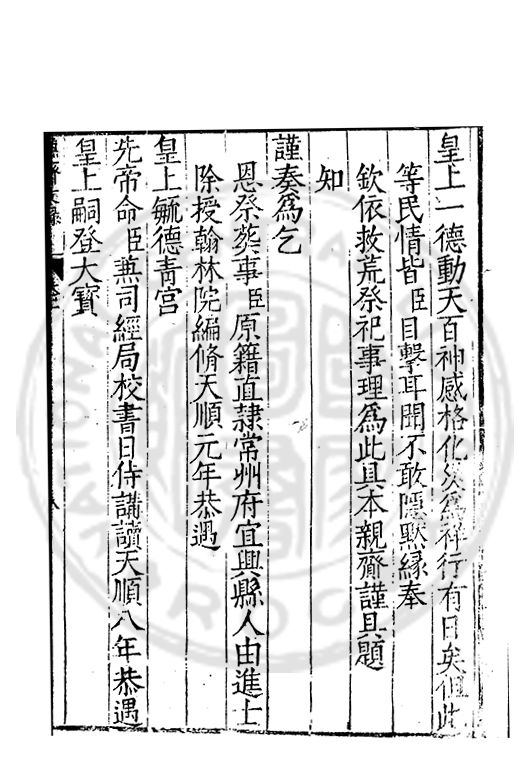 皇上一德動天百神感格化災為祥行有日矣但此
等民情皆臣目擊耳聞不敢隱默緣奉
欽依救荒祭祀事理爲此具本親齎謹具題
知
謹奏爲乞
恩祭葬事臣原籍直隷常州府宜興縣人由進士
除授翰林院編脩天順元年恭遇
皇上毓德青宫
先帝命臣兼司經局校書日侍講讀天順八年恭遇
皇上嗣登大寳